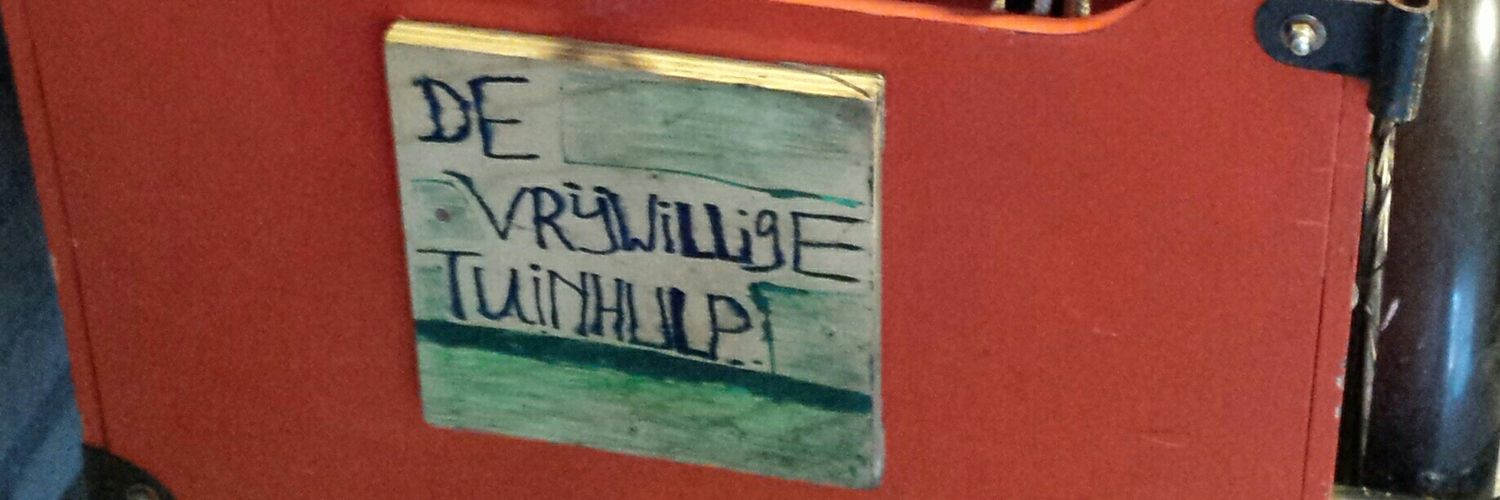 DE
VRijWiLLigE
TUiNHULP